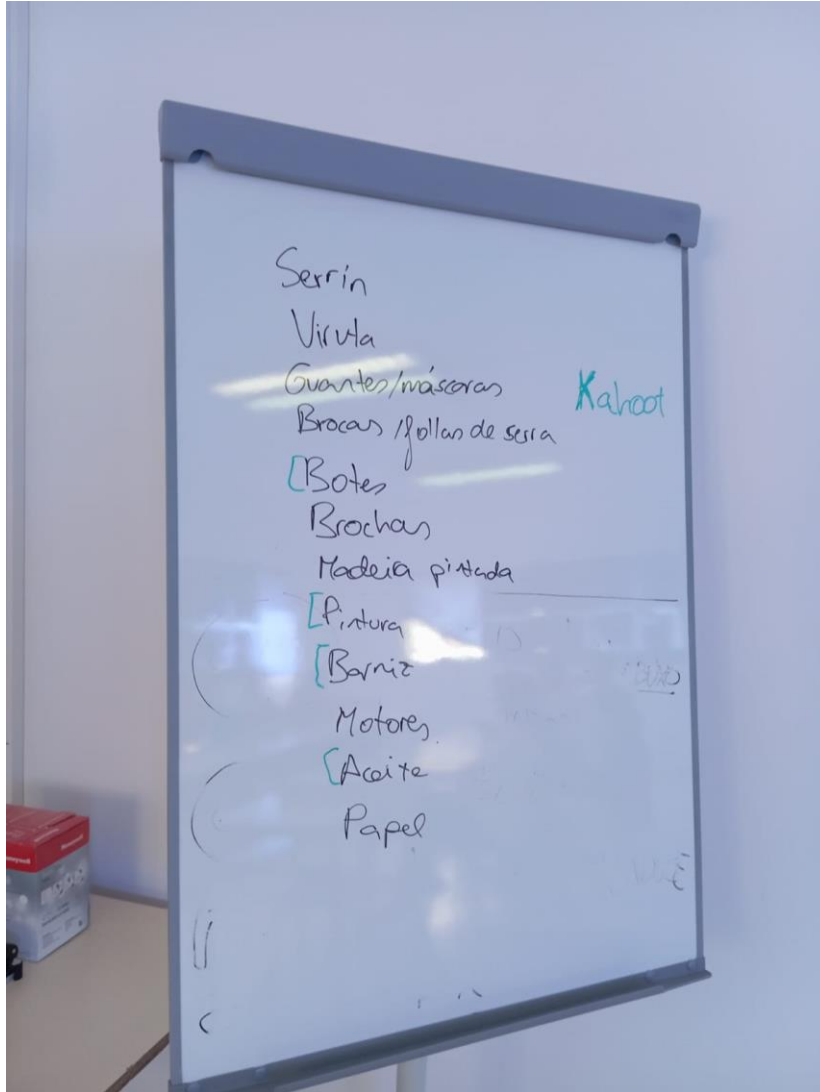 Serrín
Viruta
Guantes/máscaras
Kahoot
Brocas /follas de serra
[Botes
Brochas
Madeira pintada
[Pintura
[Barniz
Motores
[Aceite
Papel
Honeywell